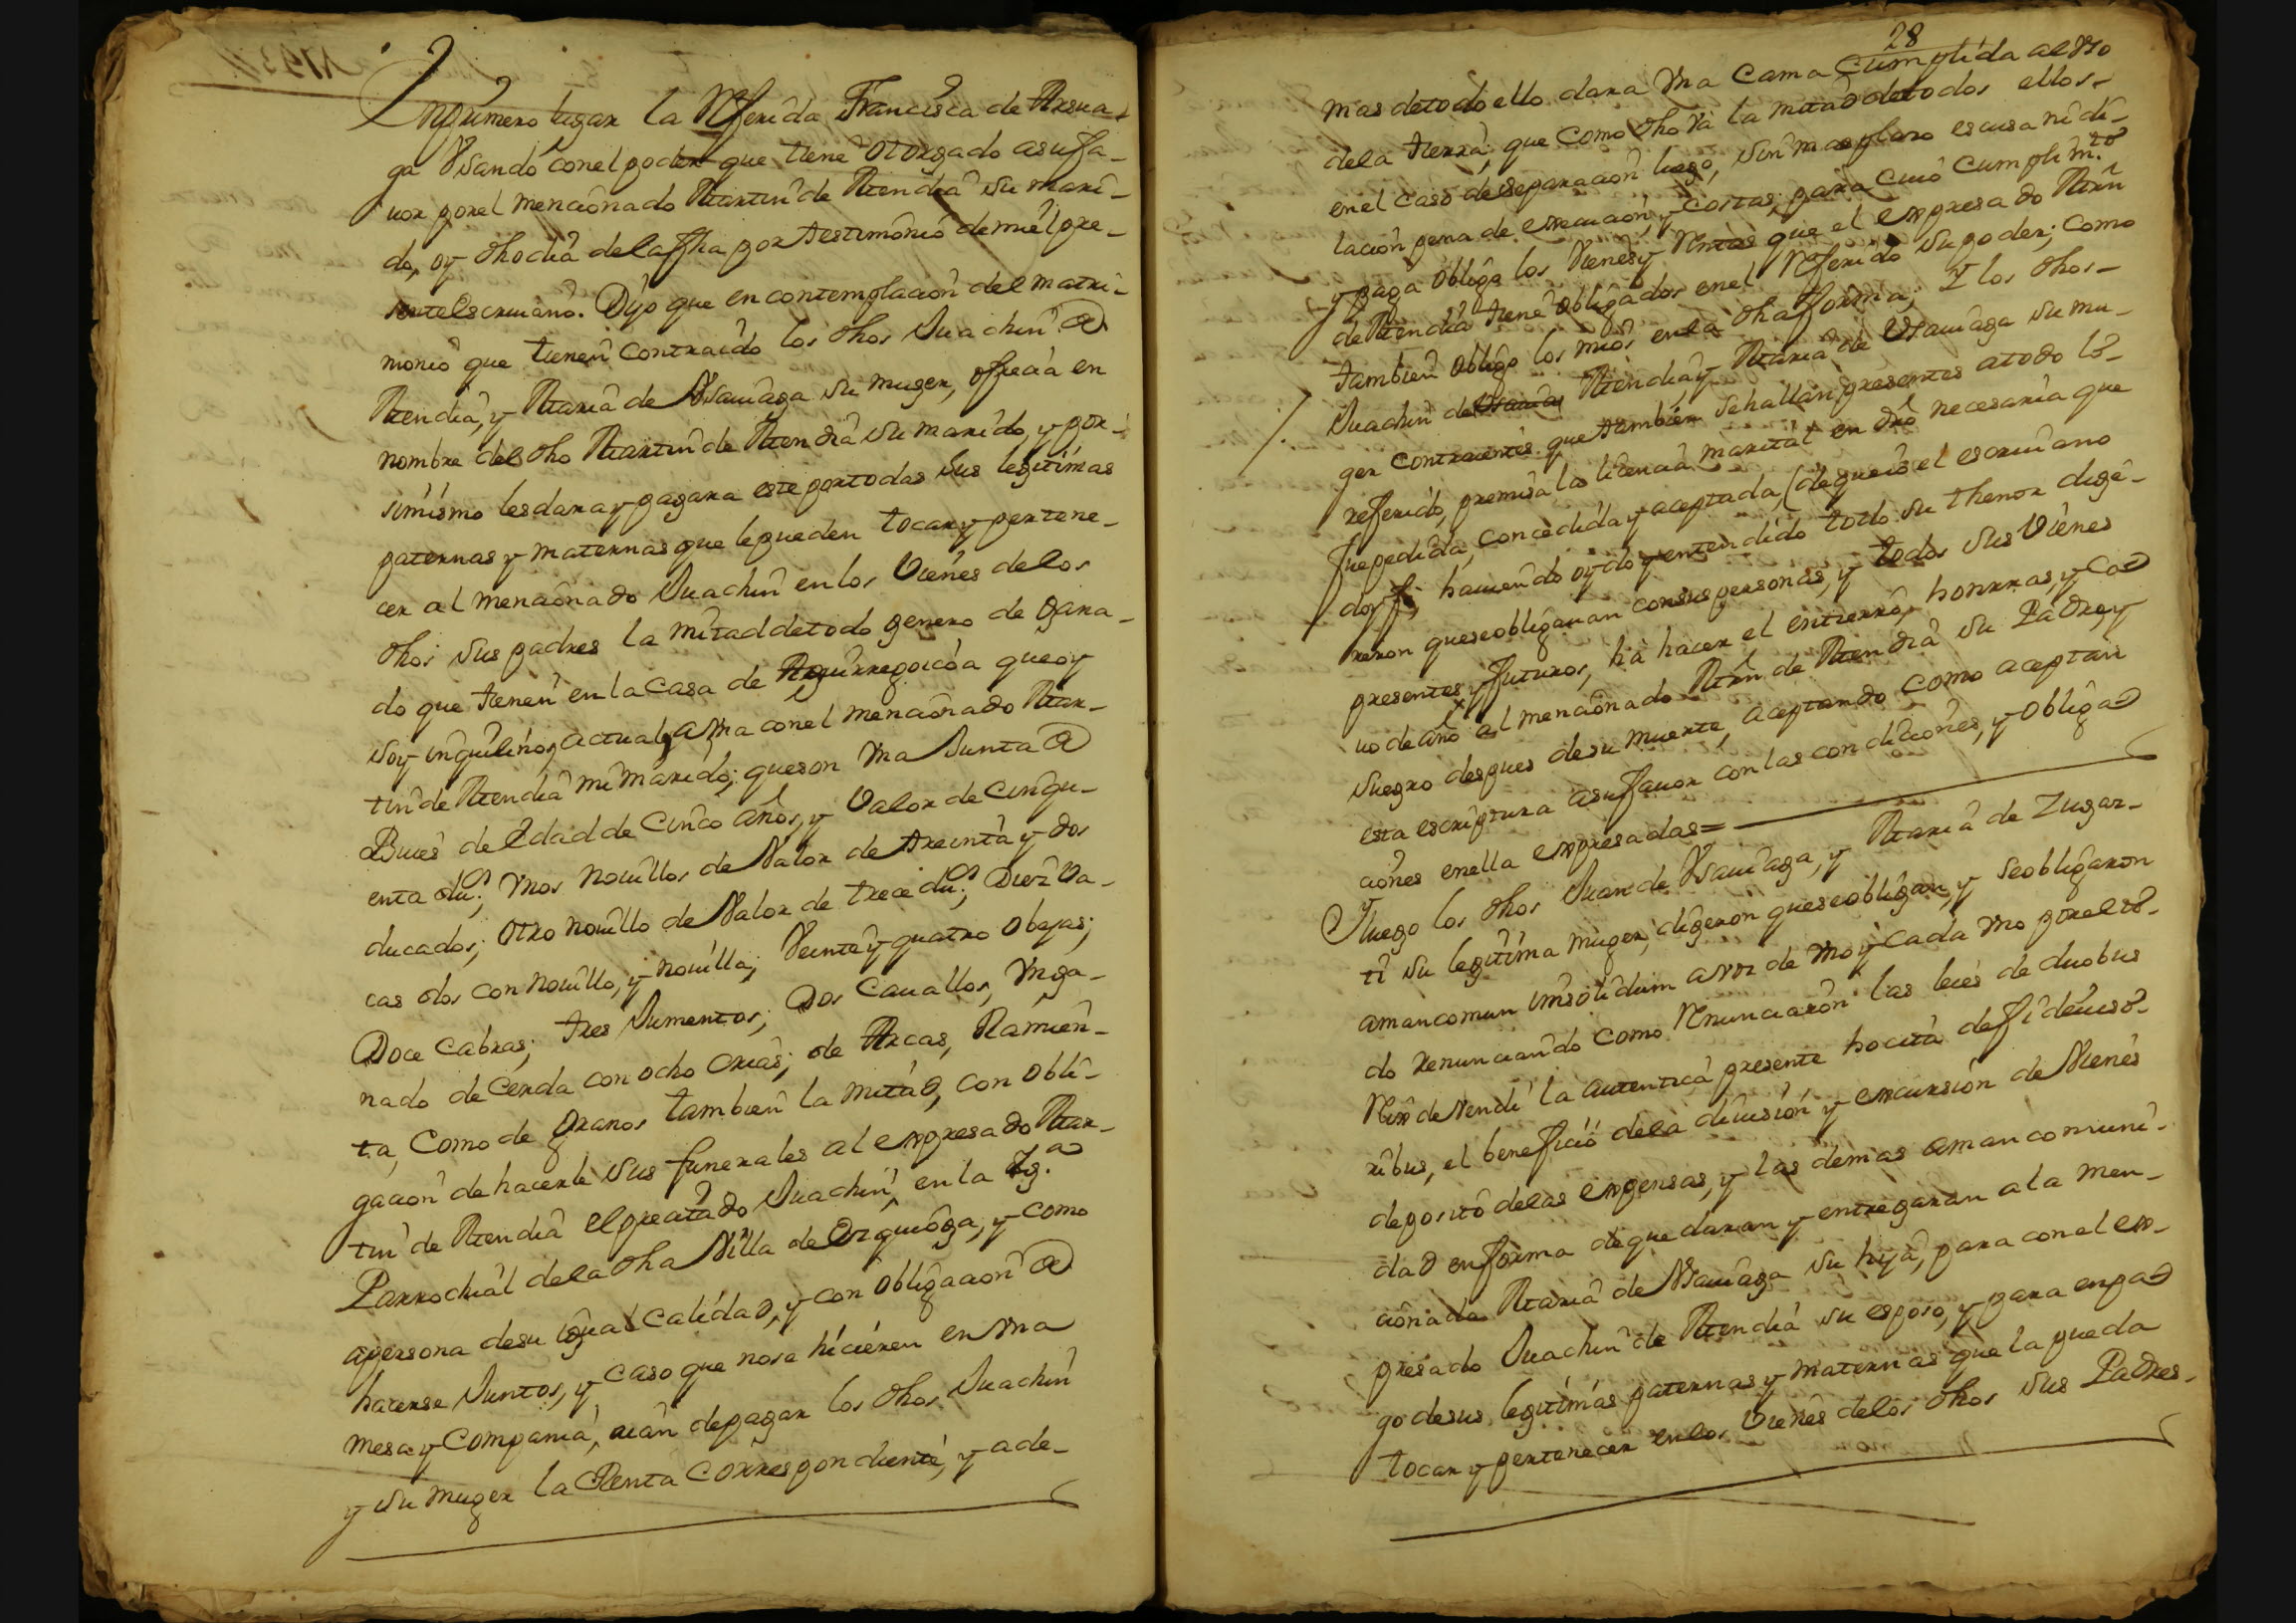 Enprimero lugar la Referida Francisca de Arsua-
ga Vsando conel poder que tiene otorgado asu fa-
uor porel mencionado Martin de Mendia su mari-
do, oy dho dia dela fha por testimonio demi el pre-
sente escriuano. Dijo que en contemplacion del matri-
monio que tienen contraido los dhos Juachin de
Mendia, y Maria de Vsauiaga su muger, ofrecia en
nombre del dho Martin de Mendia su marido, y por
simismo lesdara y pagara este portodas sus legitimas
paternas y maternas que le pueden tocar y pertene-
cer al mencionado Juachin en los Vienes delos
dhos sus padres la mitad detodo genero de gana-
do que tienen en la Casa de Aguirregoicoa que oy
soy inquilinos actual a vna conel mencionado Mar-
tin de Mendia mi marido; queson vna Junta de
Bues de Edad de Cinco años, y Valor de Cinqu-
enta dus; vnos nouillos de Valor de treinta y dos
ducados; otro nouillo de Valor de trece dus; Diez Va-
cas dos con nouillo, y nouilla; Veinte y quatro obejas;
Doce Cabras; tres Jumentos; Dos Cauallos, Yn ga-
nado de Cerda con ocho Crias; de Arcas, Ramien-
ta, Como de granos tambien la mitad, con obli-
gacion de hacerle sus funerales al expresado Mar-
tin de Mendia el precitado Juachin, en la Yg.a
Parrochial dela dha Villa de Ezquioga, y como
apersona desu igual Calidad, y con obligacion de
hacerse Juntos, y caso que nose hicieren en vna
mesa y Compania, aian depagar los dhos Juachin
y su muger la Renta Correspondiente, y ade-
28
mas detodo ello dara vna Cama Cumplida al vso
dela tierra; que Como dho va la mitad detodos ellos
enel caso de separacion luego, sin mas plazo escusa ni di-
lacion pena de execucion, y Costas; para cuio Cumplim.to
y paga obliga los Vienes y Rentas que el expresado Mrn
de Mendia tiene obligados enel Referido su poder; como
tambien obligo los mios en la dha forma; Y los dhos
Juachin de Mendia, y Maria de Vsauiaga su mu-
ger Contraientes que tambien se hallan presentes atodo lo
referido, premisa la licencia marital en dro necesaria que
fue pedida, concedida y aceptada, (de que io el escriuano
doy fe, hauiendo oydo y entendido todo su thenor dige-
reron queseobligauan consus personas, y todos sus Vienes
presentes y futuros, ha hacer el entierro, honrras, y Ca
uo de año al mencionado Mrn de Mendia su Padre, y
suegro despues desu muerte, aceptando como aceptan
esta escriptura asufauor con las condiciones, y obliga
ciones enella expresadas=
Y luego los dhos Juan de Vsauiaga, y Maria de Zugaz-
ti su legitima muger, digeron queseobligan, y seobligaron
amancomun insolidum avoz de vno y cada vno porel to-
do renunciando como Renunciaron las leies de duobus
Rex devendi la autentica presente hocita defideiuso-
ribus, el beneficio dela diuision y excursion de Vienes
deposito delas expensas, y las demas amancomuni-
dad en forma deque daran y entregaran a la men-
cionada Maria de Vsauiaga su hija, para conel ex-
presado Juachin de Mendia su esposo, y para enpa
go desus legitimas paternas y maternas que la pueda
tocar y pertenecer enlos Vienes delos dhos sus Padres